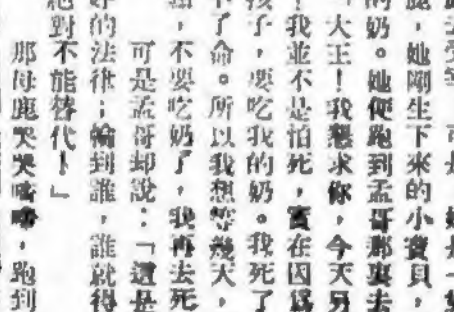 可是
鹿，她剛生下來的小寶貝，
的奶。她便跑到孟哥那裏去
「大王！我懇求你，今天另
！我並不是怕死，實在因爲
孩子，要吃我的奶。我死了
不了命。所以我想等幾天，
，不要吃奶了，我再去死
可是孟哥却說：「這是
好的法律；輪到誰，誰就得
絕對不能替代！」
那母鹿哭哭啼啼，跑到